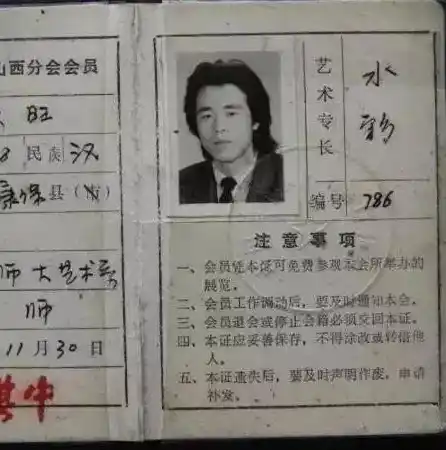 山西分会会员
旺
民族 汉
康保县（市）
师大艺术系
师
11月30日
其中
艺术专长
水彩
编号 786
注意事项
一、会员凭本证可免费参观本会所举办的
展览。
二、会员工作调动后，要及时通知本会。
三、会员退会或停止会籍必须交回本证。
四、本证应妥善保存，不得涂改或转借他
人。
五、本证遗失后，要及时声明作废，申请
补发。